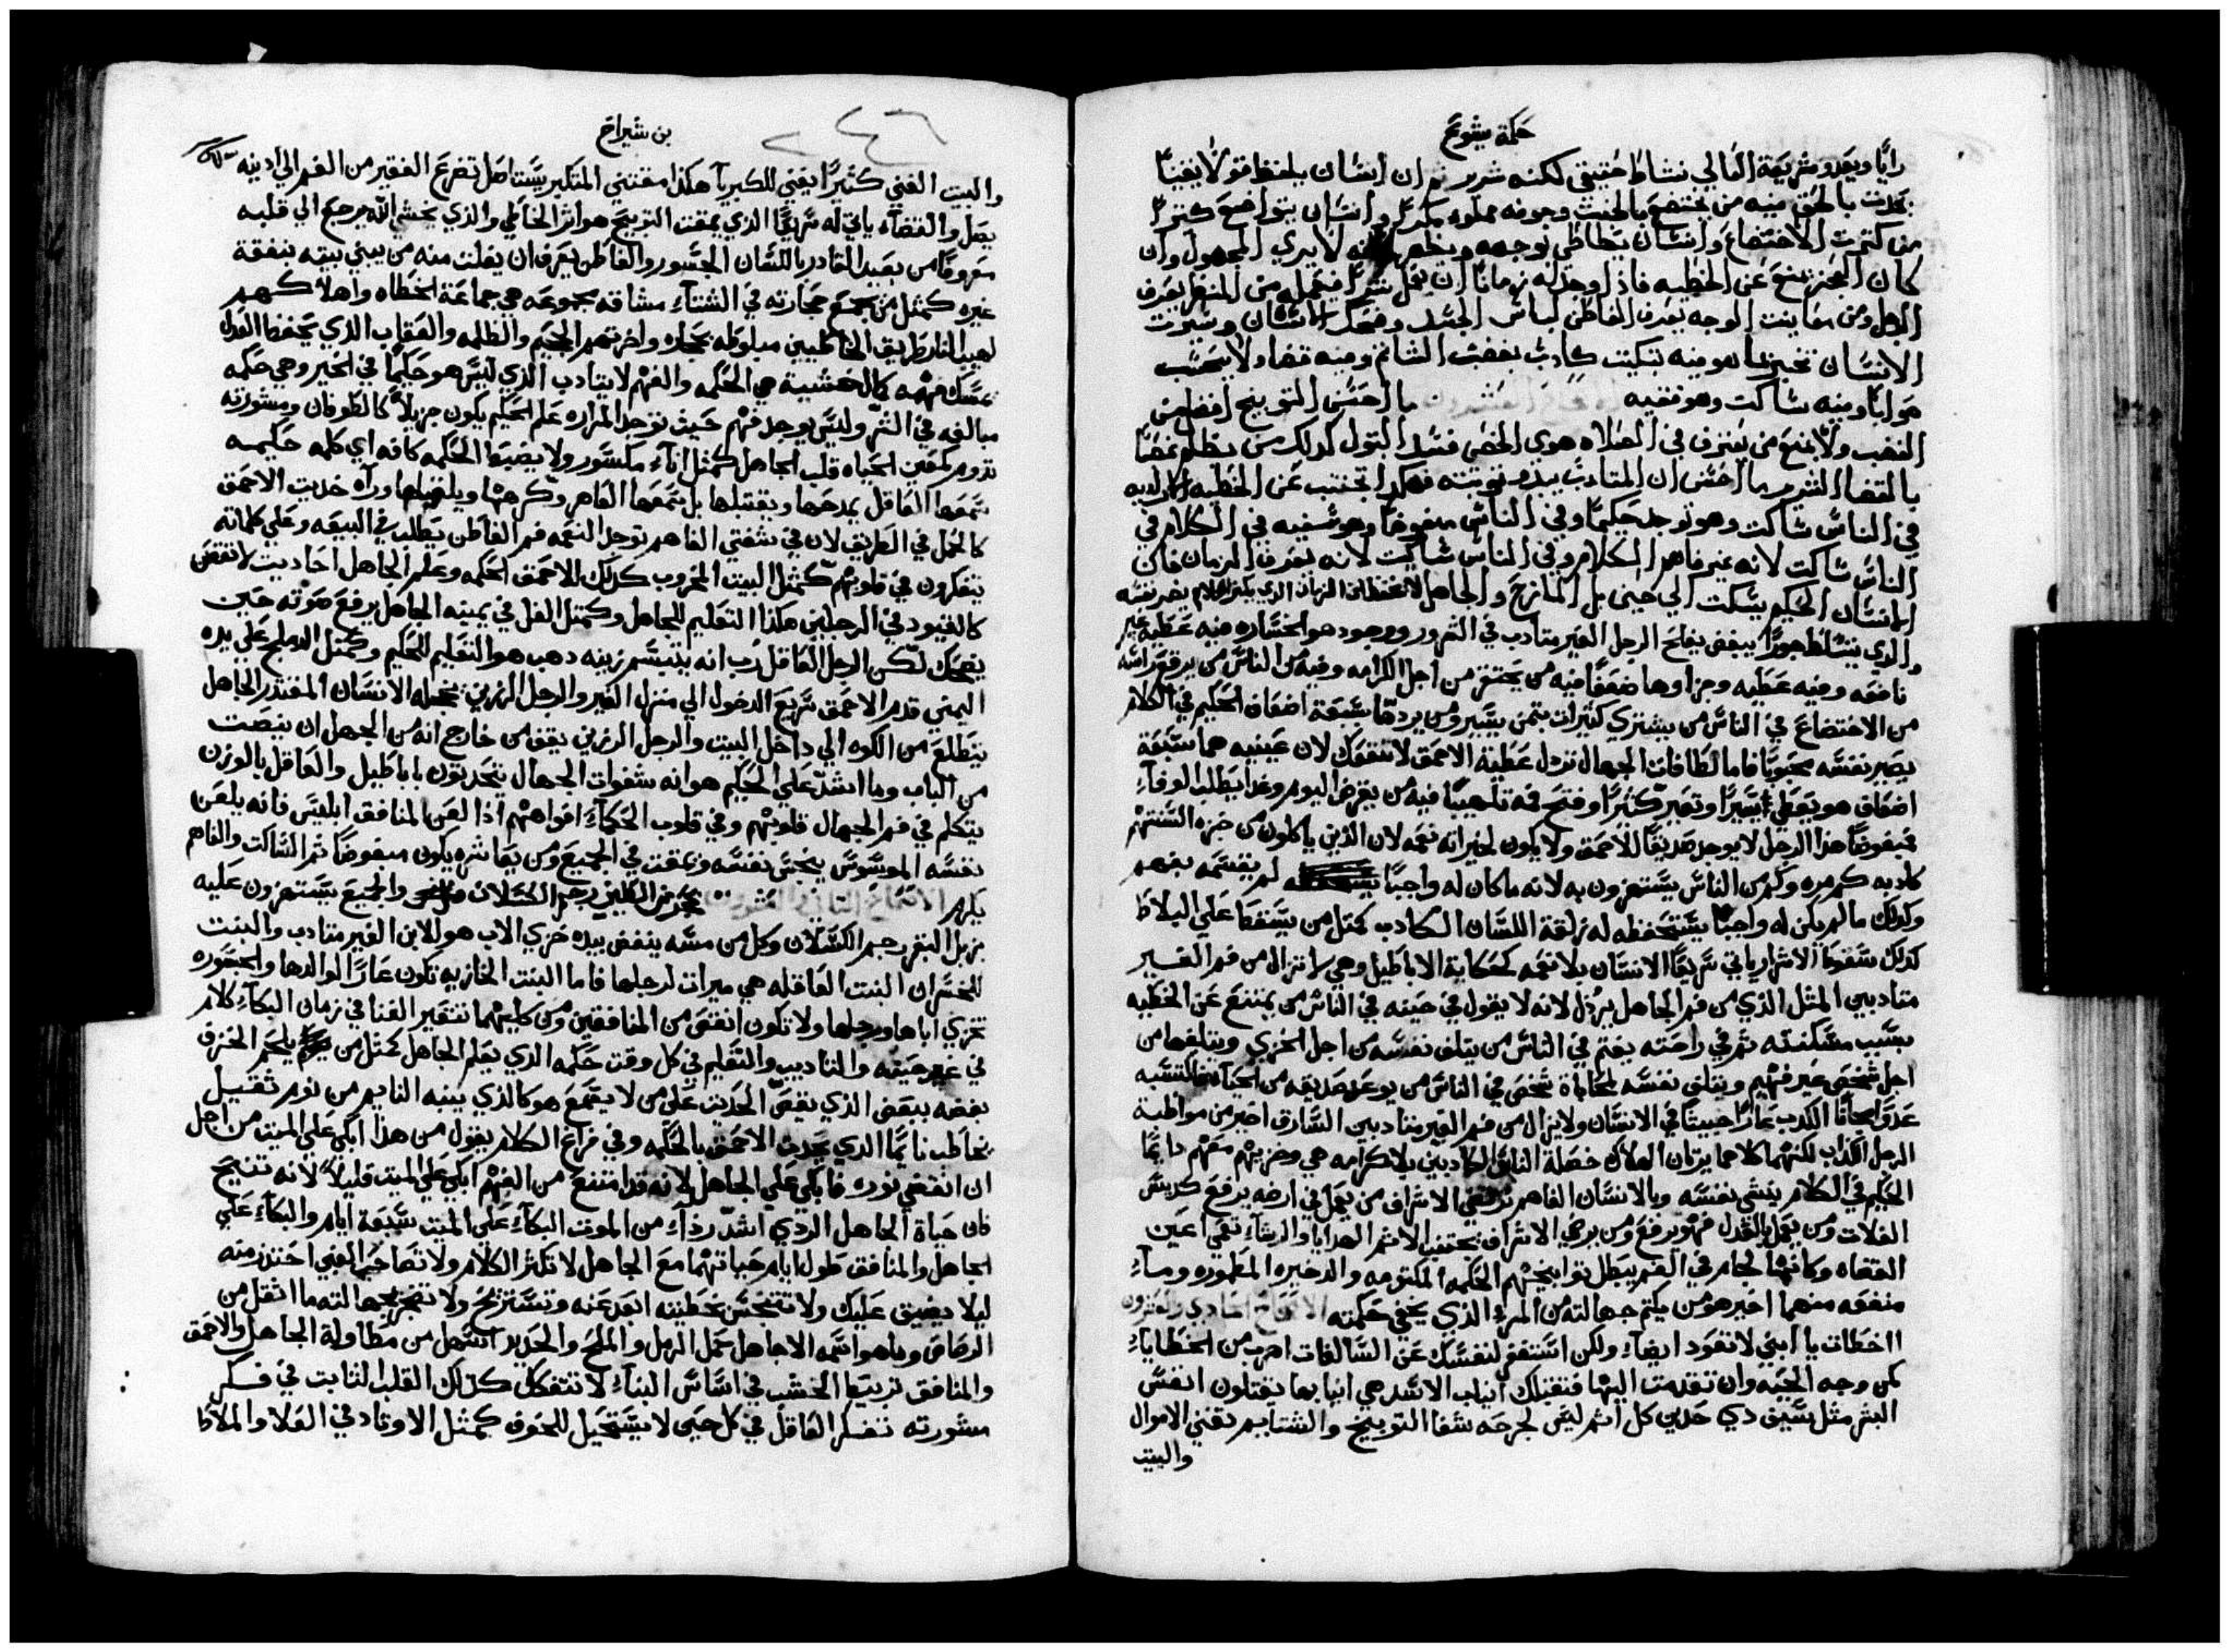 حكمة يشوع
رايًا ويعد وشريعة العالي نشاط حقيقي لكنه شرير ثم ان انسان يلفظ قولًا يقينًا
يحدث بالحق فيه من يخضع بالخبث وجوفه مملوه مكرًا وانسان يتواضع كثيرًا
من كثرت الاختضاع وانسان يطاطي لوجهه ويظهر انه لا يري المجهول وان
كان العجز يمنع عن الخطيه فاذا وجد له زمانًا ان يعمل شرًا فيعمله من المنظر يعرف
الرجل ومن معاينت الوجه يعرف الفاطن لباس الجسد وضحك الاسنان وسيرت
الانسان تخبر بما هو منه تبكيت كادب بغضب الشاتم ومنه قضا ولا يحسب
صوابًا ومنه ساكت وهو فقيه ما احسن التوبيخ افضل من
الغضب ولا يمنع من يعترف في الصلاه هوي الخصي فسد البتول كذلك من يظلم غصبًا
بالقضا الشرير ما احسن ان المتادب يبدو توبته فهكذا تجتنب عن الخطيه الاراديه
في الناس ساكت وهو توجد حكيمًا وفي الناس مبغوضًا وهو سفيه في الكلام في
الناس ساكت لانه غير فاهم الكلام وفي الناس ساكت لانه يعرف الزمان فان
الانسان الحكيم يسكت الي حين بل المازح والجاهل لا يحفظان الزمان الدي يكثر الكلام يضر نفسه
والدي يتسلط جورًا يبغض يفلح الرجل الغير متادب في الشرور ووجود هو الخساره فيه عطية غير
نافعه وفيه عطيه وجزاوها ضعفًا فيه من يحتقر من اجل الكرامه وفيه من الناس من يرفع راسه
من الاختضاع في الناس من يشتري كثيرات بثمن يسير ومن يردها بسبعة اضعاف الحكيم في الكلام
يصير نفسه محبوبًا فاما لطافات الجهال تزل عطية الاحمق لا تنفعك لان عينيه هما سبعة
اضعاف هو يعطي يسيرًا وتعير كثيرًا وفتح فمه تلهيبًا فيه من يقرض اليوم وغدا يطلب الوفاء
مبغوضًا هذا الرجل لا يوجد صديقًا للاحمق ولا يكون لخيراته نعمه لان الذين ياكلون من خبزه السنتهم
كادبه كم مره وكم من الناس يستهزون به لانه ما كان له واجبًا لم يقسمه بفهم
وكذلك ما لم يكن له واجبًا يستحفظه له زلقة اللسان الكادب كمثل من يسقط علي البلاط
كذلك سقوط الاشرار ياتي سريعًا الانسان بلا نعمه كحكاية الاباطيل وهي لا تزال من فم الغير
متادبين المثل الذي من فم الجاهل يرذل لانه لا يقول في حينه في الناس من يمتنع عن الخطيه
بسبب مسكنته ثم في راحته يغتم في الناس من يتلف نفسه من اجل الخزي ويتلفها من
اجل شخص غير فهيم ويتلف نفسه لمحاباة شخص في الناس من يوعد صديقه من الحيا فيكتسبه
عدوًا مجانًا الكدب عارًا خبيثًا في الانسان ولا يزال من فم الغير متادبين السارق اخير من مواظبة
الرجل الكداب لكنهما كلاهما يرثان الهلاك خصلة الناس الكادبين بلا كرامه هي وخزيهم معهم دايمًا
الحكيم في الكلام ينشي نفسه وبالانسان الفاهم ترتضي الاشراف من يعمل في ارضه يرفع كريس
الغلات ومن يعمل بالعدل فهو يرفع ومن يرضي الاشراف يجتنب الاثم الهدايا والرشاء تعمي اعين
القضاه وكانها لجام في الفم يبطل توابيخهم الحكمه المكتومه والدخيره المطموره وما
منفعه منهما اخير هو من يكتم جهالته من المرء الذي يخفي حكمته الاصحاح الحادي والعشرون
ااخطات يا ابني لا تعود ايضًا ولكن استغفر لنفسك عن السالفات اهرب من الخطايا
كمن وجه الحيه وان تقدمت اليها فتقبلك انياب الاسد هي انيابها يقتلون انفس
البشر مثل سيف دي حدين كل اثم ليس لجرحه شفا التوبيخ والشتايم تفني الاموال
والبيت
بن شيراخ
٢٤٦
والبيت الغني كثيرًا يفني للكبريآ هكذا مقتني المتكبر يستاصل تضرع الفقير من الفم الي ادنيه
يصل والقضاء ياتي له سريعًا الذي يمقت التوبيخ هو اثر الخاطي والذي يخشي الله يرجع الي قلبه
معروفًا من بعيد القادر باللسان الجسور والفاطن يعرف ان يفلت منه من يبني بيته بنفقة
غيره كمثل من يجمع حجارته في الشتآء مشاقه مجموعه هي جماعة الخطاه واهلاكهم
لهيب النار طريق الخاطيين مبلوطه بحجاره واخرتهم الجحيم والظلمه والعقاب الذي يحفظ العدل
يمسك فهمه كمال خشية هي الحكمه والفهم لا يتادب الذي ليس هو حكيمًا في الخير وهي حكمه
مبالغه في الشر وليس يوجد فهم حيث توجد المراره علم الحكيم يكون جزيلًا كالطوفان ومشورته
تدوم كمعين الحياه قلب الجاهل كمثل انآء مكسور ولا يضبط الحكمه كافه اي كلمه حكيمه
سمعها العاقل يمدحها ويقتبلها بل سمعها الفاهر وكرهها ويلقيها ورآه حديث الاحمق
كالحمل في الطريق لان في شفتي الفاهم توجد النعمه فم الفاطن يطلب في البيعه وعلي كلماته
يتفكرون في قلوبهم كمثل البيت المخروب كذلك الاحمق الحكمه وعلم الجاهل احاديث لا تنقص
كالقيود في الرجلين هكذا التعليم للجاهل وكمثل الغل في يمينه الجاهل يرفع صوته حين
يضحك لكن الرجل العاقل رب انه يبتسم زينه دهب هو التعليم للحكيم وكمثل الدملج علي يده
اليمني قدم الاحمق سريع الدخول الي منزل الغير والرجل الرزين يخجله الانسان المقتدر الجاهل
يتطلع من الكوه الي داخل البيت والرجل الرزين يقف من خارج انه من الجهل ان ينصت
من الباب وما اشد علي الحكيم هو انه شفوات الجهال تتحدثون باباطيل والعاقل بالوزن
يتكلم في فم الجهال قلوبهم وفي قلوب الحكمآء افواههم اذا لعن المنافق ابليس فانه يلعن
نفسه الموسوس ينجس نفسه ويمقت في الجميع ومن يعاشره يكون مبغوضًا ثم الساكت والفاهم
يكرم الاصحاح الثاني والعشرون بحجر من الطين رجم الكسلان والجميع يستهزون عليه
بزبل البقر رجم الكسلان وكل من مسه ينفض بيده خزي الاب هو للابن الغير متادب والبنت
للخسران البنت العاقله هي ميراث لرجلها فاما البنت الخازيه تكون عارًا لوالدها والجسوره
تخزي اباها ورجلها ولا تكون انقص من المنافقين ومن كليهما تتقير الغنا في زمان البكآء كلام
في غير حينه والتاديب والتعليم في كل وقت حكمه الدي يعلم الجاهل كمثل من يلحم الخزف
بعضه ببعض الذي يقص الحديث علي من لا يسمع هو كالذي ينبه النايم من نوم ثقيل
يخاطب نايمًا الدي يحدث الاحمق بالحكمه وفي فراغ الكلام يقول من هذا ابكي علي الميت من اجل
ان انقضي نوره فابكي علي الجاهل لانه قد امتنع من الفهم ابكي علي الميت قليلًا لانه تنيح
فان حياة الجاهل الردي اشد رذآء من الموت البكآء علي الميت سبعة ايام والبكآء علي
الجاهل والمنافق طول ايام حياتهما مع الجاهل لا تكثر الكلام ولا تصاحب الغبي احتذر منه
ليلا يضيق عليك ولا تتنجس بخطيته ابعد عنه وتستريح ولا تضجر بجهالته ما اثقل من
الرصاص وما هو اسمه الا جاهل حمل الرمل والملح والحديد اسهل من مطاولة الجاهل والاحمق
والمنافق تربيط الخشب في اساس البنآء لا تتفكك كذلك القلب الثابت في فكر
مشورته تفكر العاقل في كل حين لا يستحيل للخوف كمثل الاوتاد في العلا والملاط